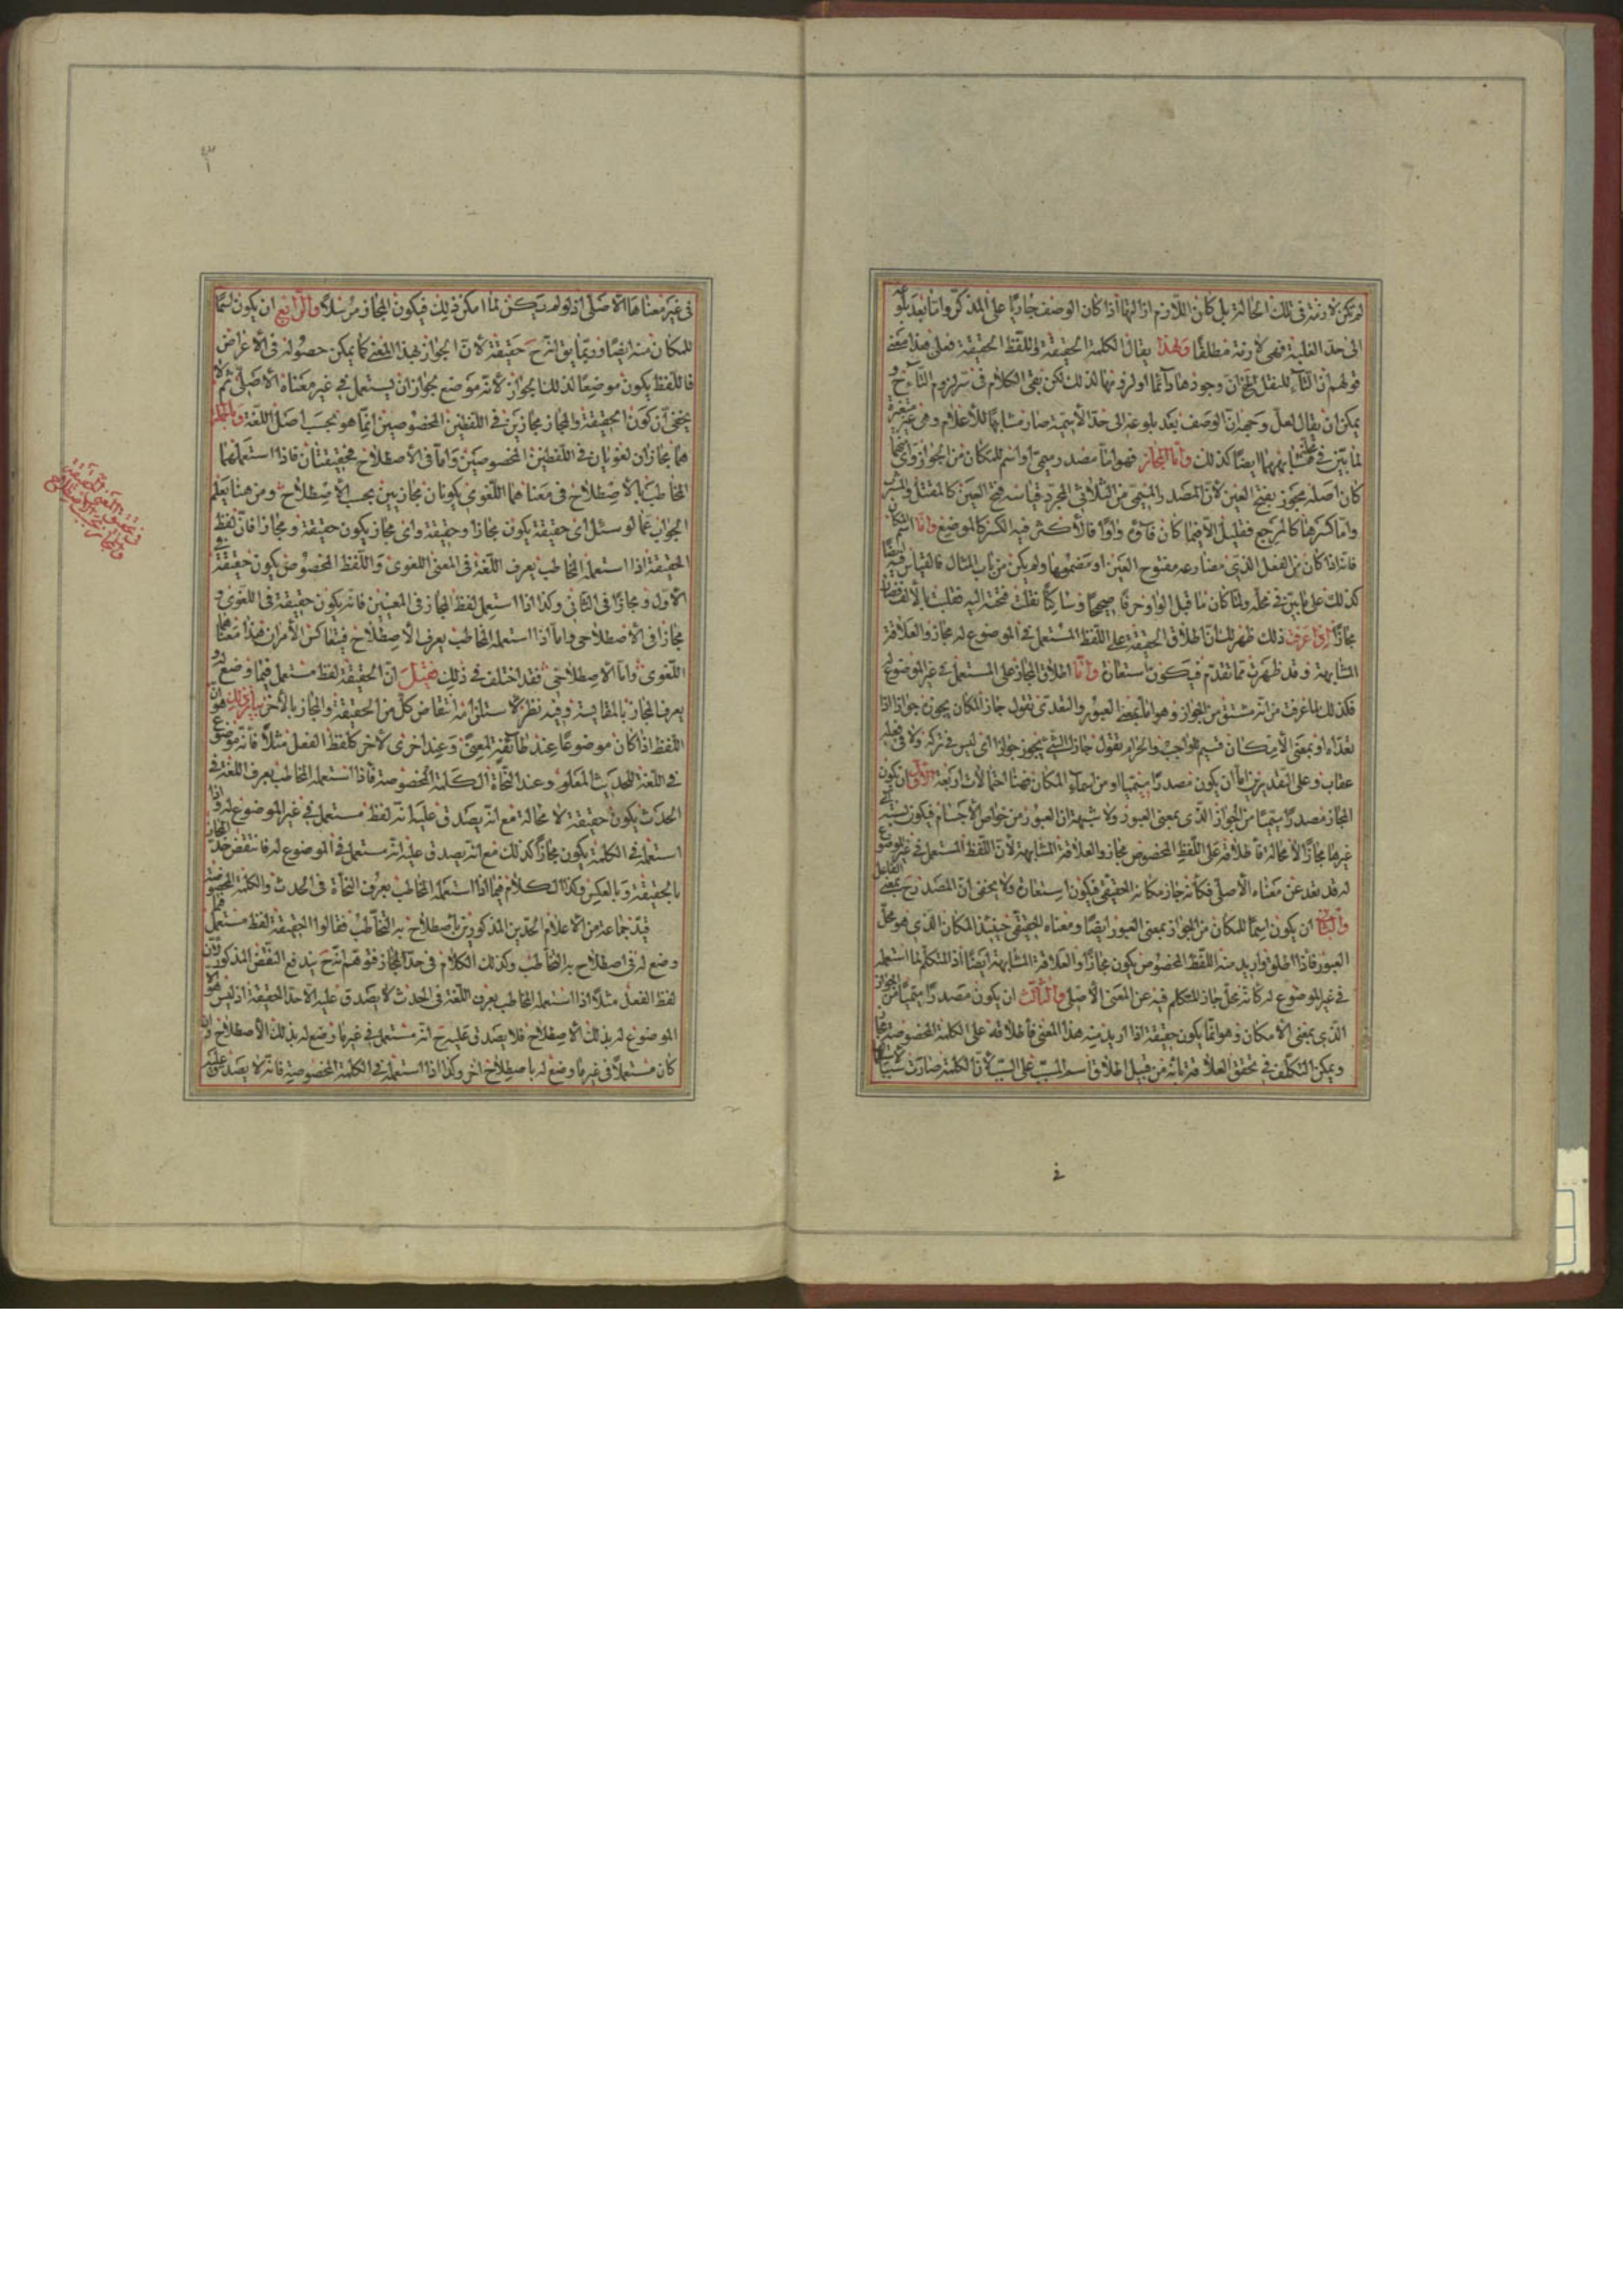 لم تكن لازمة فى تلك الحالة بل كان اللازم ازالتها اذا كان الوصف جاريا على المذكر واما بعد بلوغه
الى حد الغلبة فهى لازمة مطلقا ولهذا يقال الكلمة الحقيقة واللفظ الحقيقة فعلى هذا معنى
قولهم ان التاء للنقل ح ان وجودها دائما او لزومها لذلك لكن بقى الكلام فى سر لزوم التاء ح و
يمكن ان يقال لعل وجهه ان الوصف بعد بلوغه الى حد الاسمية صار مشابها للاعلام وهى غير متغيرة
لما بين فى محله فمشابهها ايضا كذلك واما المجاز فهو اما مصدر ميمى او اسم للمكان من الجواز واياما
كان اصله مجوز بفتح العين لان المصدر الميمى من الثلاثى المجرد قياسه فتح العين كالمقتل والمشرب
واما كسرها كالمرجع فقليل الا فيما كان فاؤه واوا فالاكثر فيه الكسر كالموضع واما اسم المكان
فانه اذا كان من الفعل الذى مضارعه مفتوح العين او مضمومها ولم يكن من باب المثال فالقياس فيه ايضا
كذلك على ما بين فى محله ولما كان ما قبل الواو حرفا صحيحا وساكنا نقلت فتحته اليه فقلبت بالالف فصار
مجازا اذا عرفت ذلك ظهر لك ان اطلاق الحقيقة على اللفظ المستعمل فى الموضوع له مجاز والعلاقة
المشابهة وقد ظهرت مما تقدم فيكون استعارة واما اطلاق المجاز على المستعمل فى غير الموضوع له
فكذلك لما عرفت من انه مشتق من الجواز وهو اما بمعنى العبور والتعدى تقول جاز المكان يجوز جوازا اذا
تعداه او بمعنى الامكان قسيم الواجب والحرام تقول جاز الشئ يجوز جوازا اى ليس فى تركه ولا فى فعله
عقاب وعلى التقديرين اما ان يكون مصدرا ميميا او من اسماء المكان فهنا احتمالات اربعة الاول ان يكون
المجاز مصدرا ميميا من الجواز الذى بمعنى العبور ولا شبهة ان العبور من خواص الاجسام فيكون نسبته الى
غيرها مجازا لا محالة فاطلاقه على اللفظ المخصوص مجاز والعلاقة المشابهة لان اللفظ المستعمل فى غير الموضوع
له قد بعد عن معناه الاصلى فكانه جاز مكانه الحقيقى فيكون استعارة ولا يخفى ان المصدر ح بمعنى الفاعل
والثانى ان يكون اسما للمكان من الجواز بمعنى العبور ايضا ومعناه الحقيقى حينئذ المكان الذى هو محل
العبور فاذا اطلق واريد منه اللفظ المخصوص يكون مجازا والعلاقة المشابهة ايضا اذ المتكلم لما استعمله
فى غير الموضوع له كانه محل جاز المتكلم فيه عن المعنى الاصلى والثالث ان يكون مصدرا ميميا من الجواز
الذى بمعنى الامكان وهو انما يكون حقيقة اذا اريد منه هذا المعنى فاطلاقه على الكلمة المخصوصة مجاز
ويمكن التكلف فى تحقق العلاقة بانه من قبيل اطلاق اسم المسبب على السبب لان الكلمة صارت سببا
فى
٣
فى غير معناها الاصلى اذ لو لم يكن لما امكن ذلك فيكون المجاز مرسلا والرابع ان يكون اسما
للمكان منه ايضا وربما يق انه ح حقيقة لان الجواز بهذا المعنى كما يمكن حصوله فى الاغراض
فاللفظ يكون موضعا لذلك الجواز لانه موضع لجواز ان يستعمل فى غير معناه الاصلى ثم لا
يخفى ان كون الحقيقة والمجاز مجازين فى اللفظين المخصوصين انما هو بحسب اصل اللغة وبالجملة
هما مجازان لغويان فى اللفظين المخصوصين واما فى الاصطلاح فحقيقتان فاذا استعملهما
المخاطب بالاصطلاح فى معناهما اللغوى يكونان مجازيين بحسب الاصطلاح ومن هنا يعلم
الجواب عما لو سئل اى حقيقة يكون مجازا وحقيقة واى مجاز يكون حقيقة ومجازا فان لفظ
الحقيقة اذا استعمله المخاطب بعرف اللغة فى المعنى اللغوى واللفظ المخصوص يكون حقيقة فى
الاول ومجازا فى الثانى وكذا اذا استعمل لفظ المجاز فى المعنيين فانه يكون حقيقة فى اللغوى و
مجازا فى الاصطلاحى واما اذا استعمله المخاطب بعرف الاصطلاح فيتعاكس الامران هذا معناهما
اللغوى واما الاصطلاحى فقد اختلف فى ذلك فقيل ان الحقيقة لفظ مستعمل فيما وضع له و
يعرف المجاز بالمقايسة وفيه نظر لاستلزامه انتقاض كل من الحقيقة والمجاز بالاخر بيان ذلك هو ان
اللفظ اذا كان موضوعا عند طائفة لمعنى وعند اخرى لاخر كلفظ الفعل مثلا فانه موضوع
فى اللغة للحدث المعلوم وعند النحاة الكلمة المخصوصة فاذا استعمله المخاطب بعرف اللغة فى
الحدث يكون حقيقة لا محالة مع انه يصدق عليه انه لفظ مستعمل فى غير الموضوع له واذا
استعمله فى الكلمة يكون مجازا كذلك مع انه يصدق عليه انه مستعمل فى الموضوع له فانتقض حد المجاز
بالحقيقة وبالعكس وكذا الكلام فيما اذا استعمله المخاطب بعرف النحاة فى الحدث والكلمة المخصوصة
قيد جماعة من الاعلام الحدين المذكورين باصطلاح به التخاطب فقالوا الحقيقة لفظ مستعمل فيما
وضع له فى اصطلاح به التخاطب وكذلك الكلام فى حد المجاز فتوهم انه ح يندفع النقض المذكور فان
لفظ الفعل مثلا اذا استعمله المخاطب بعرف اللغة فى الحدث لا يصدق عليه الا حد الحقيقة اذ ليس هو
الموضوع له بذلك الاصطلاح فلا يصدق عليه ح انه مستعمل فى غير ما وضع له بذلك الاصطلاح وان
كان مستعملا فى غير ما وضع له باصطلاح اخر وكذا اذا استعمله فى الكلمة المخصوصة فانه لا يصدق عليه